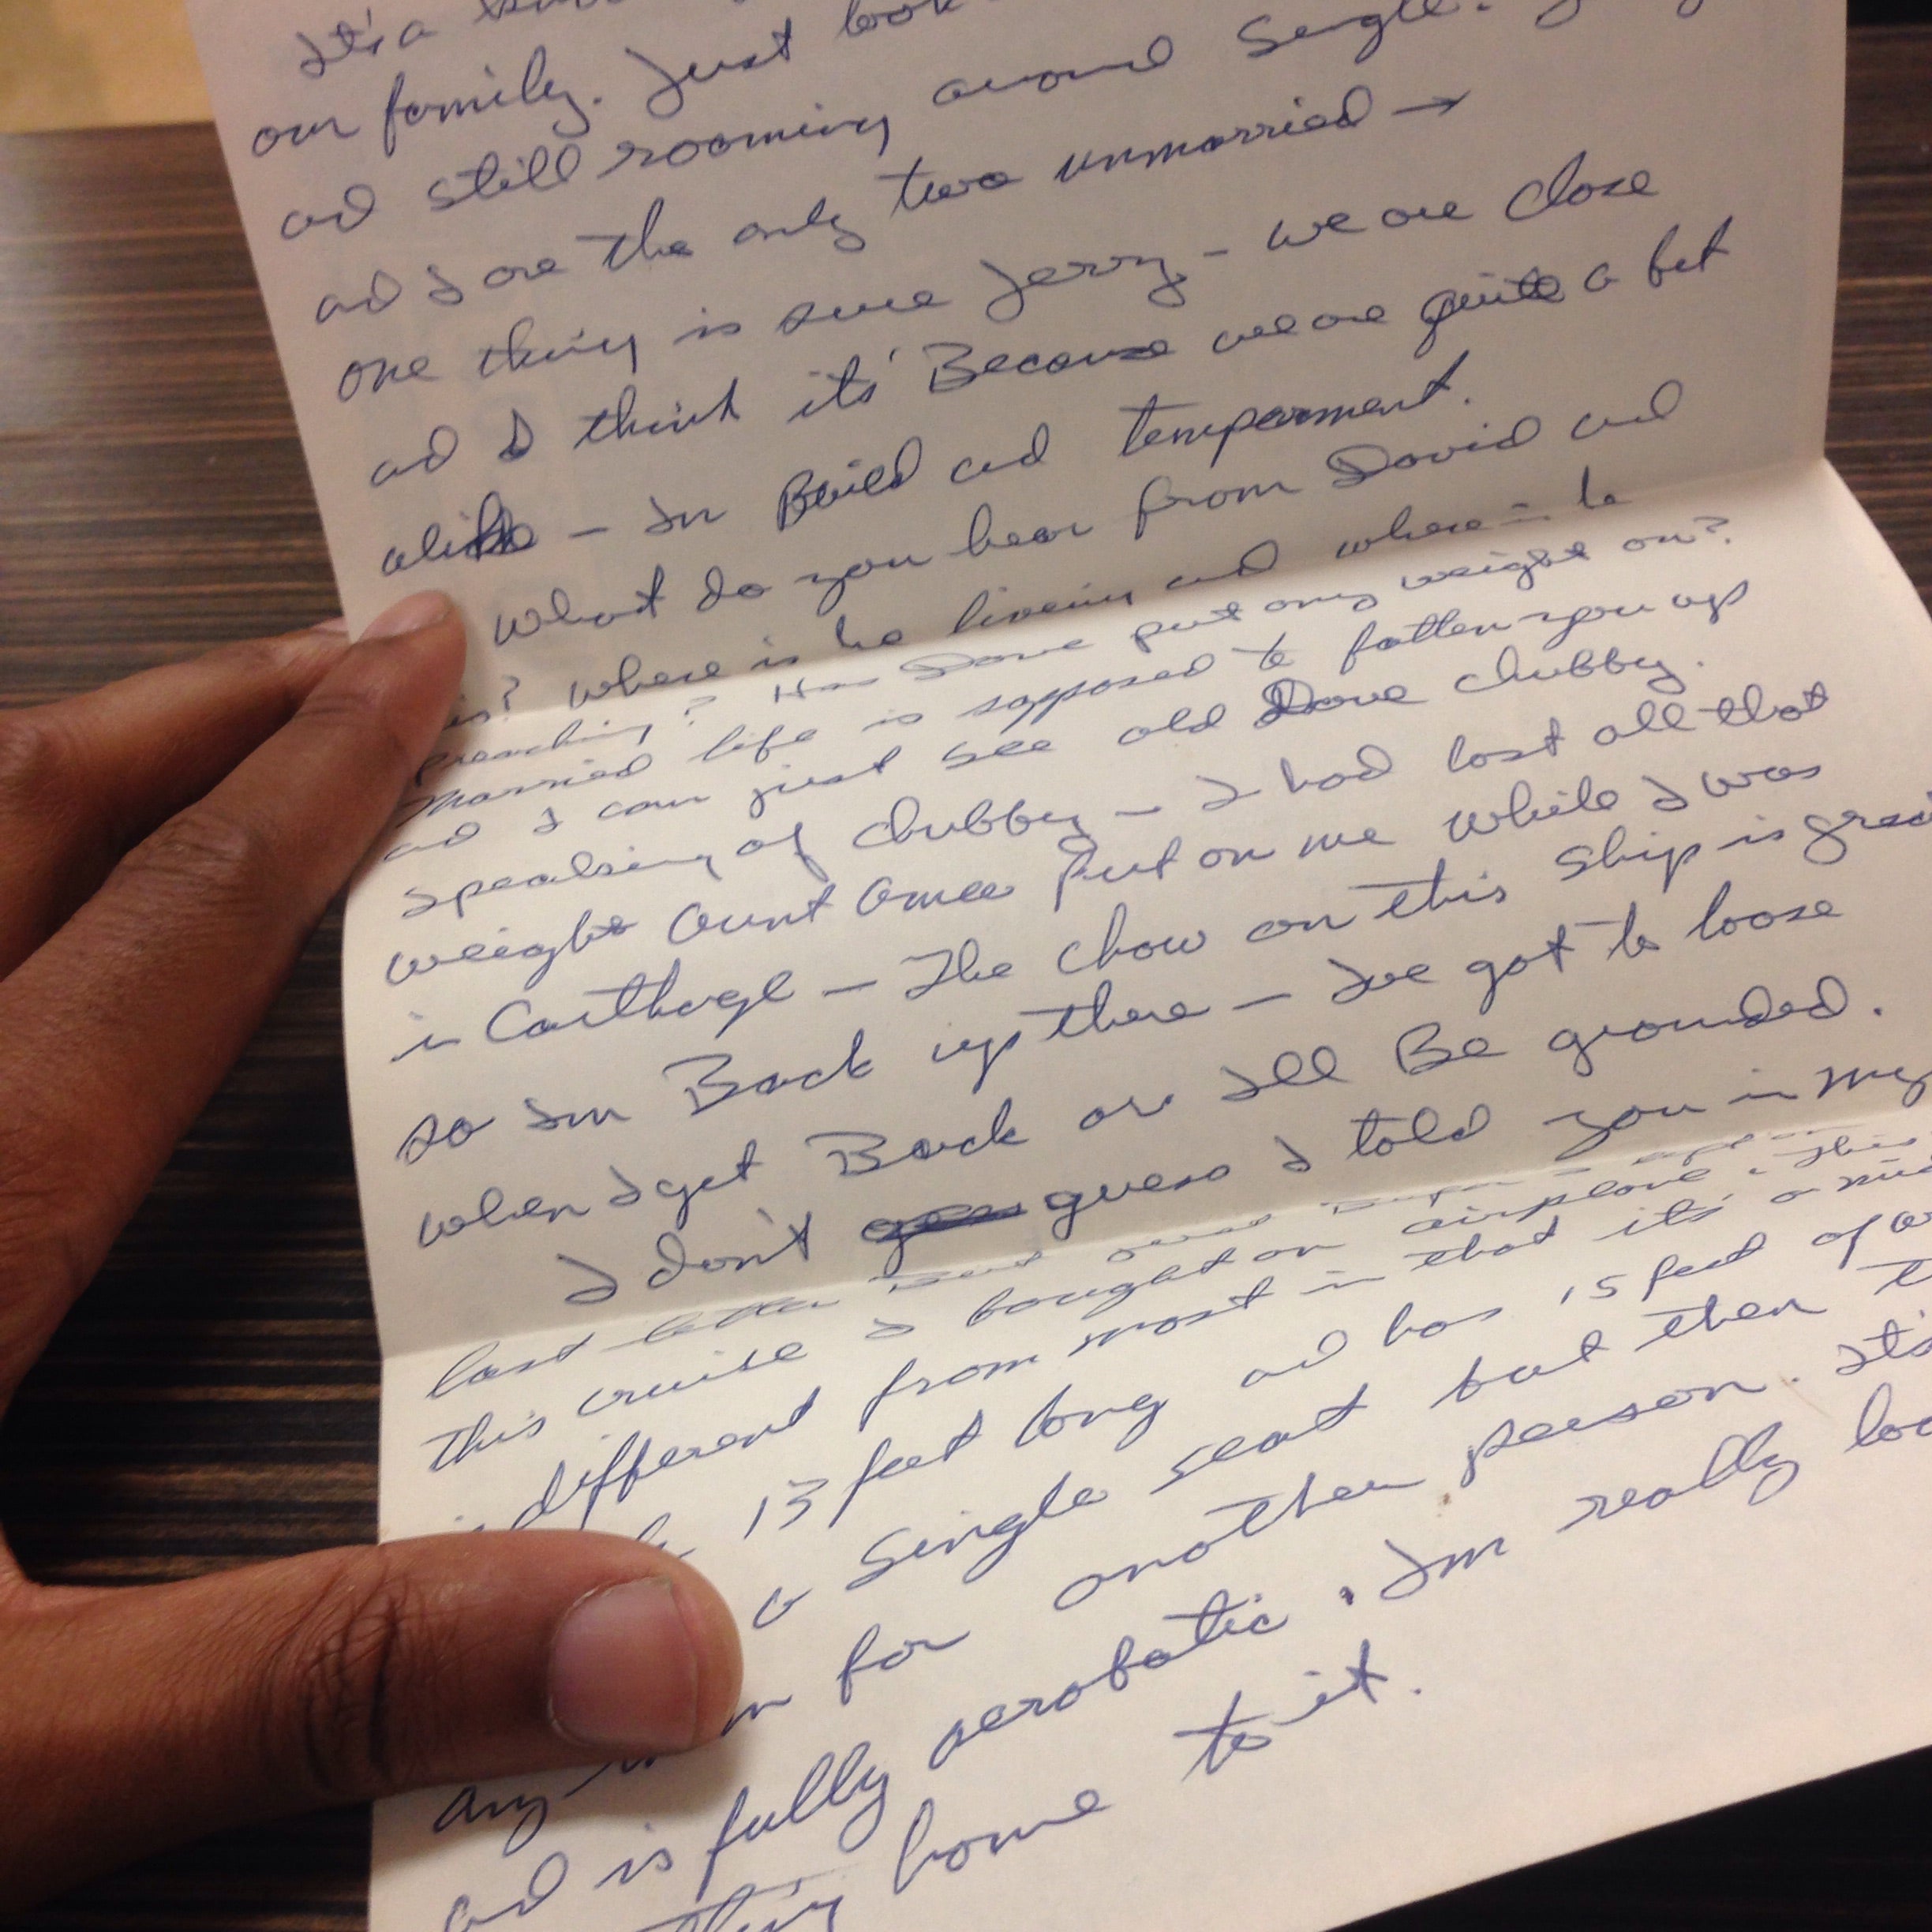 It's a
our family. Just look
and still rooming around single.
and I are the only two unmarried →
one thing is sure Jerry - we are close
and I think it's Because we are quite a bit
alike - In Build and temperment.
What do you hear from David and
is? Where is he living and where is he
preaching? Has Dave put any weight on?
Married life is sopposed to fatten you up
and I can just see old Dave chubby.
Speaking of chubby - I had lost all that
weight Aunt put on me while I was
in Carthage - The chow on this ship is great
so Im Back up there - Ive got to loose
when I get Back or Ill Be grounded.
I don't guess I told you in my
last letter
this cruise I bought an airplane. This
is different from most in that it's a
13 feet long and has 15 feet of
a single seat but then
for another person. It's
any
and is fully aerobatic. Im really
home to it.